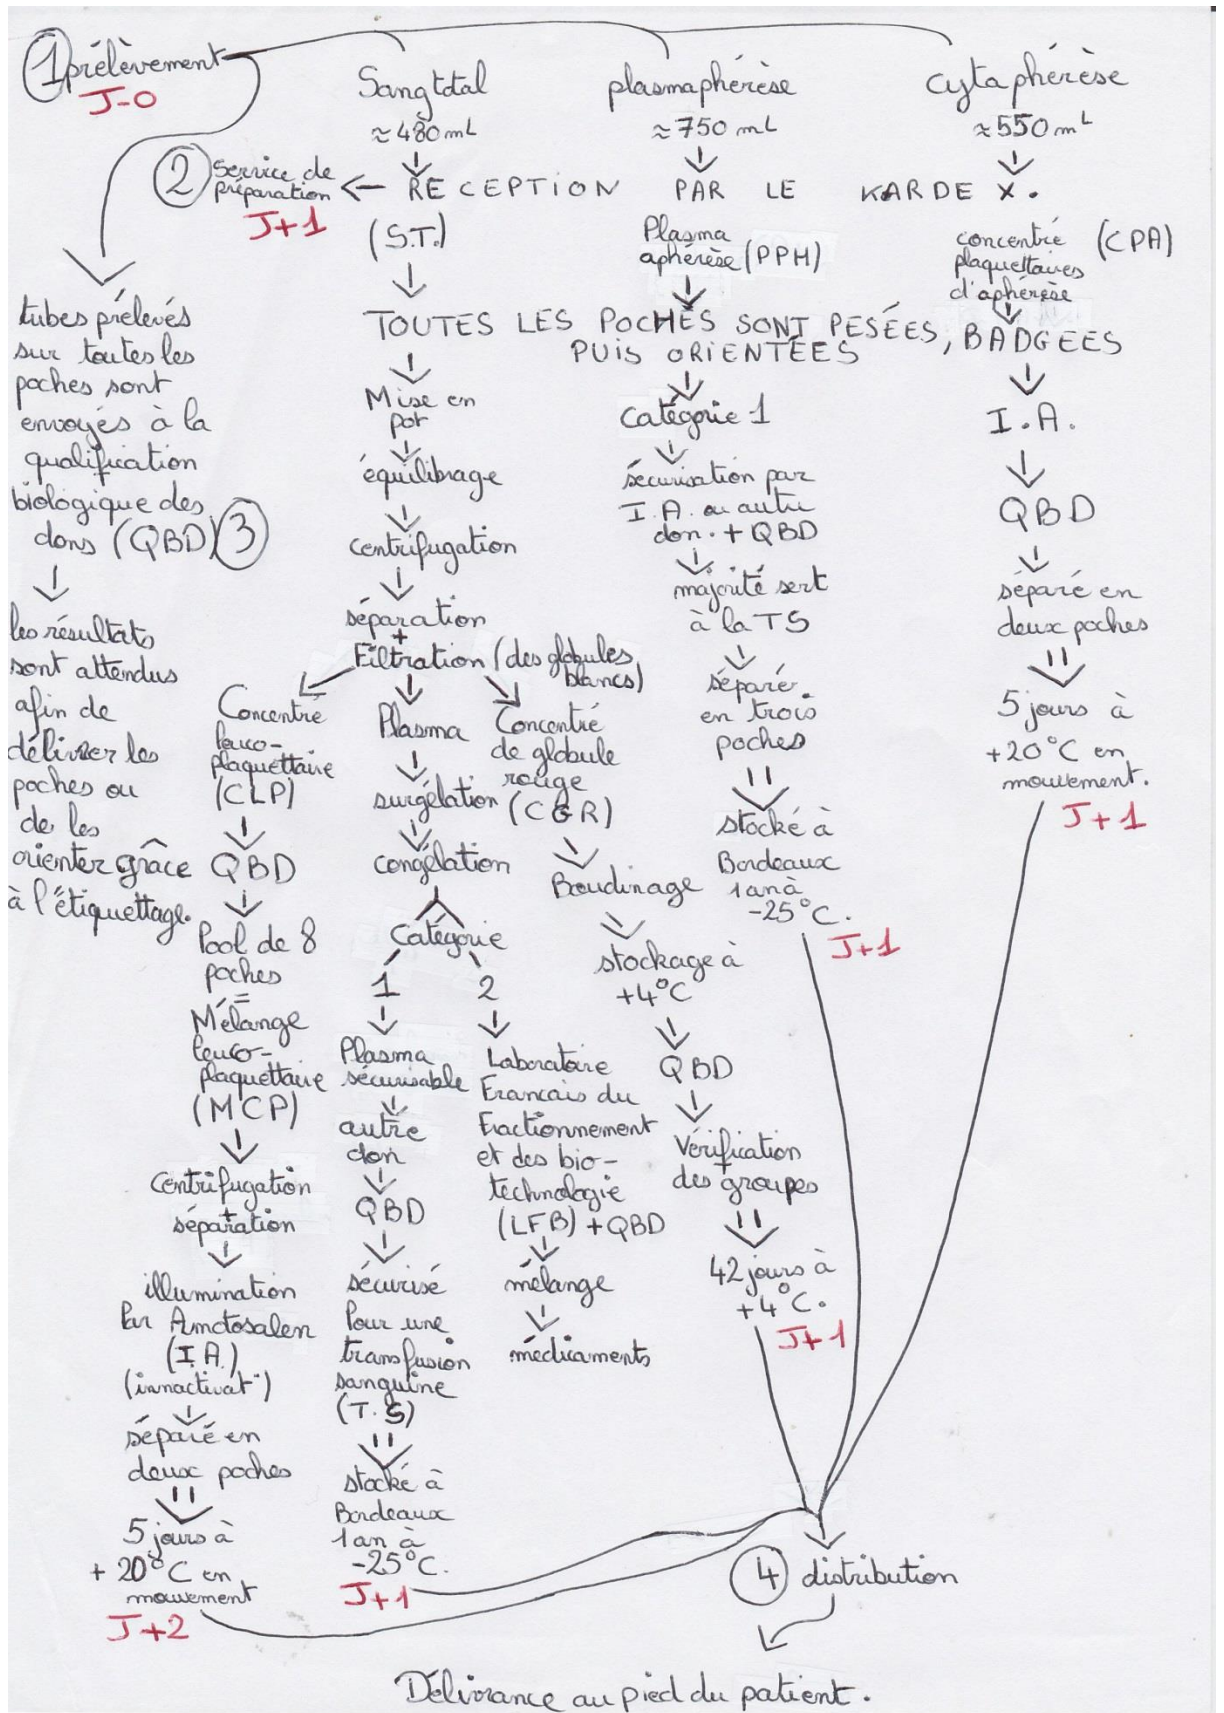 1 prélèvement
J-0
Sang total
≈ 480 mL
plasmaphérèse
≈ 750 mL
cytaphérèse
≈ 550 mL
2 Service de
préparation
J+1
RECEPTION PAR LE KARDEX.
(S.T.)
Plasma
aphérèse (PPH)
concentré (CPA)
plaquettaires
d'aphérèse
TOUTES LES POCHES SONT PESÉES, BADGEES
PUIS ORIENTÉES
tubes prélevés
sur toutes les
poches sont
envoyés à la
qualification
biologique des
dons (QBD) 3
les résultats
sont attendus
afin de
délivrer les
poches ou
de les
orienter grâce
à l'étiquettage.
Mise en
pot
équilibrage
centrifugation
séparation
+
Filtration (des globules
blancs)
Concentré
leuco-
plaquettaire
(CLP)
QBD
Pool de 8
poches
=
Mélange
leuco-
plaquettaire
(MCP)
Centrifugation
+
séparation
illumination
Par Amotosalen
(I.A.)
(innactivat°)
séparé en
deux poches
5 jours à
+ 20°C en
mouvement
J+2
Plasma
surgélation
congélation
Catégorie
1 2
Plasma
sécurisable
autre
don
QBD
sécurisé
Pour une
transfusion
sanguine
(T.S)
stocké à
Bordeaux
1 an à
-25°C.
J+1
Laboratoire
Francais du
Fractionnement
et des bio-
technologie
(LFB) + QBD
mélange
médicaments
Concentré
de globule
rouge
(CGR)
Boudinage
stockage à
+4°C
QBD
+
Vérification
des groupes
42 jours à
+4°C.
J+1
Catégorie 1
sécurisation par
I.A. ou autre
don. + QBD
majorité sert
à la TS
séparé
en trois
poches
stocké à
Bordeaux
1 an à
-25°C.
J+1
I.A.
QBD
séparé en
deux poches
5 jours à
+20°C en
mouvement.
J+1
4 distribution
Délivrance au pied du patient.